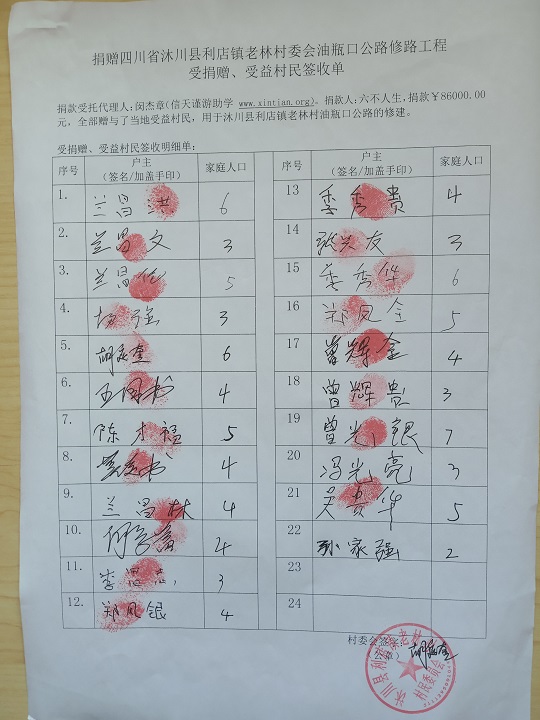 捐赠四川省沐川县利店镇老林村委会油瓶口公路修路工程
受捐赠、受益村民签收单
捐款受托代理人：闵杰章(信天谨游助学 www.xintian.org)。捐款人：六不人生，捐款￥86000.00
元，全部赠与了当地受益村民，用于沐川县利店镇老林村油瓶口公路的修建。
受捐赠、受益村民签收明细单：
序号 户主（签名/加盖手印） 家庭人口
1. 兰昌洪 6
2. 兰昌文 3
3. 兰昌 5
4. 杨强 3
5. 胡 奎 6
6. 书 4
7. 陈才福 5
8. 书 4
9. 兰昌林 4
10. 何 4
11. 李 3
12. 郑凤银 4
序号 户主（签名/加盖手印） 家庭人口
13 秀贵 4
14 张兴友 3
15 秀华 6
16 郑凤全 5
17 曾辉金 4
18 曾辉贵 3
19 曾光银 7
20 冯光亮 3
21 吴贵华 5
22 孙家强 2
23
24
村委会签字：胡 奎
公章）
沐川县利店镇老林村村民委员会